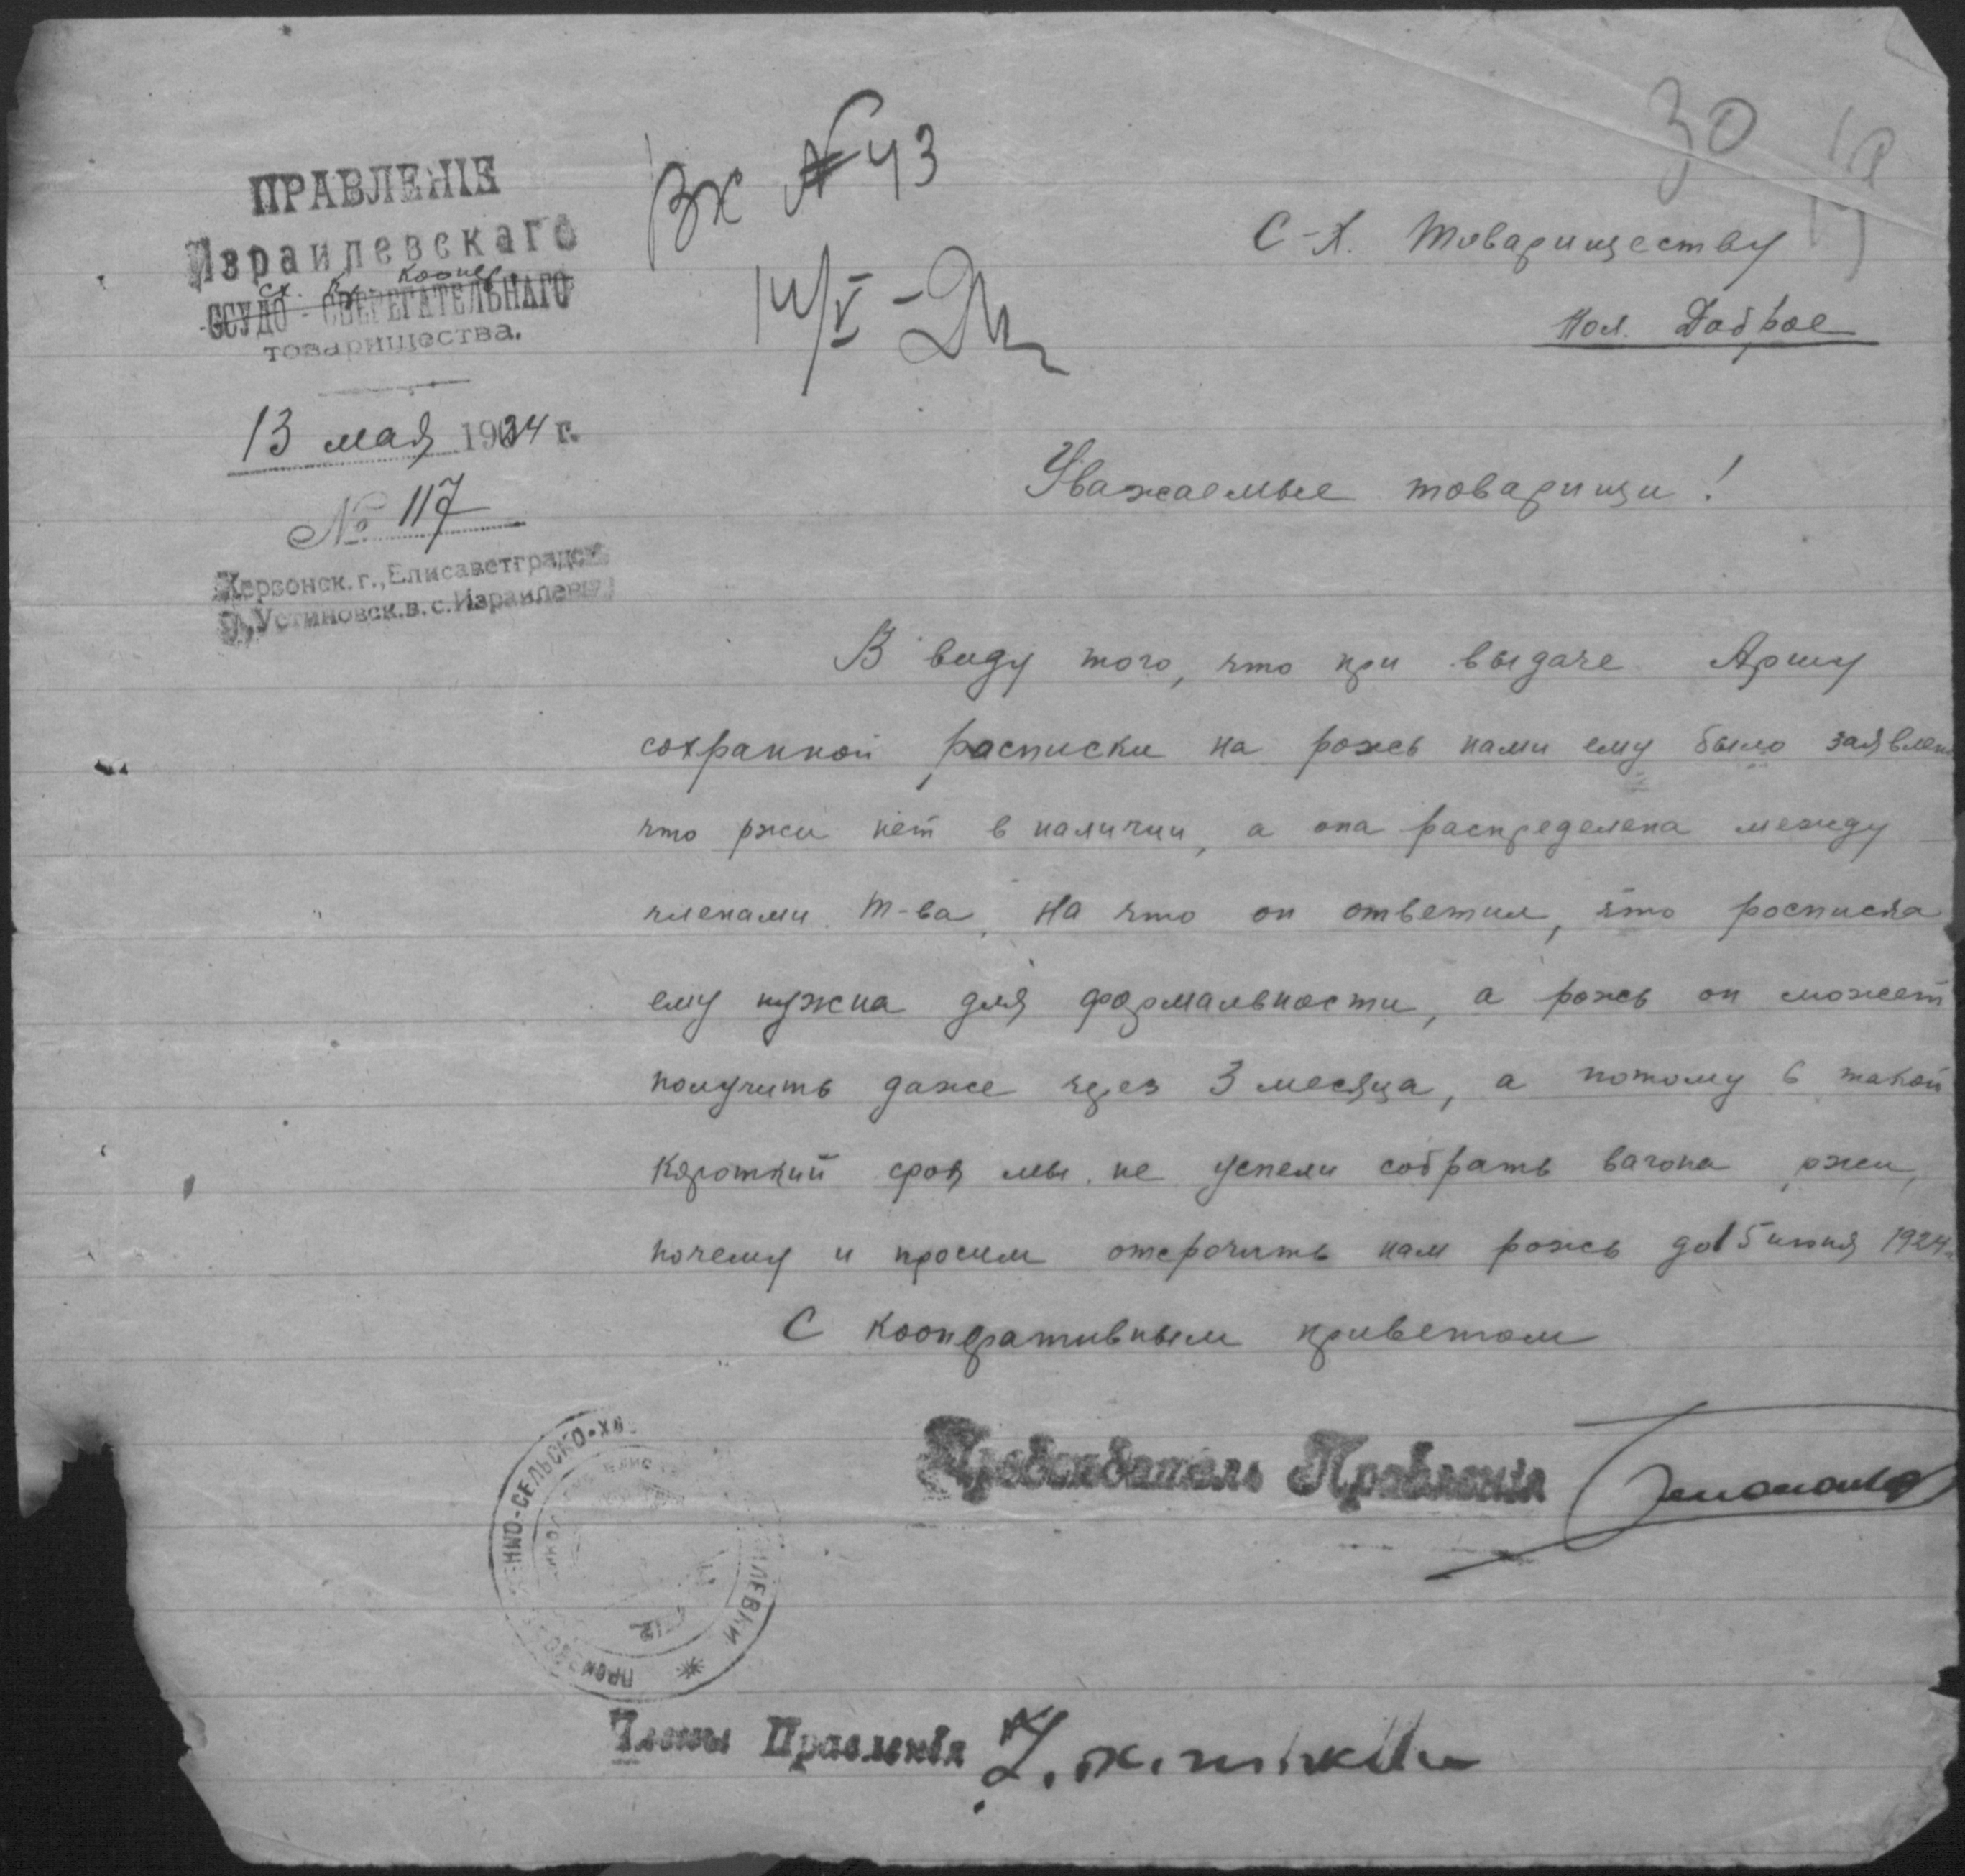 ПРАВЛЕНІЕ
Израилевскаго
с.х. Кр. Коопер.
ССУДО-СБЕРЕГАТЕЛЬНАГО
товарищества.
13 мая 1924 г.
№ 117
Херсонск. г., Елисаветградск.
у., Устиновск. в. с. Израилевка
Вх № 43
14/V -
30
С-Х. Товариществу
Кол. Доброе
Уважаемые товарищи!
В виду того, что при выдаче Аришу
сохранной расписки на рожь нами ему было заявлен
что ржи нет в наличии, а она распределена между
членами т-ва, на что он ответил, что росписка
ему нужна для формальности, а рожь он может
получить даже через 3 месяца, а потому в такой
короткий срок мы не успели собрать вагона ржи,
почему и просим отсрочить нам рожь до 15 июня 1924 г.
С кооперативным приветом
Председатель Правленія
ЕННО-СЕЛЬСКО-ХО
ИЛЕВКИ
ПРОИЗВО
Члены Правленія